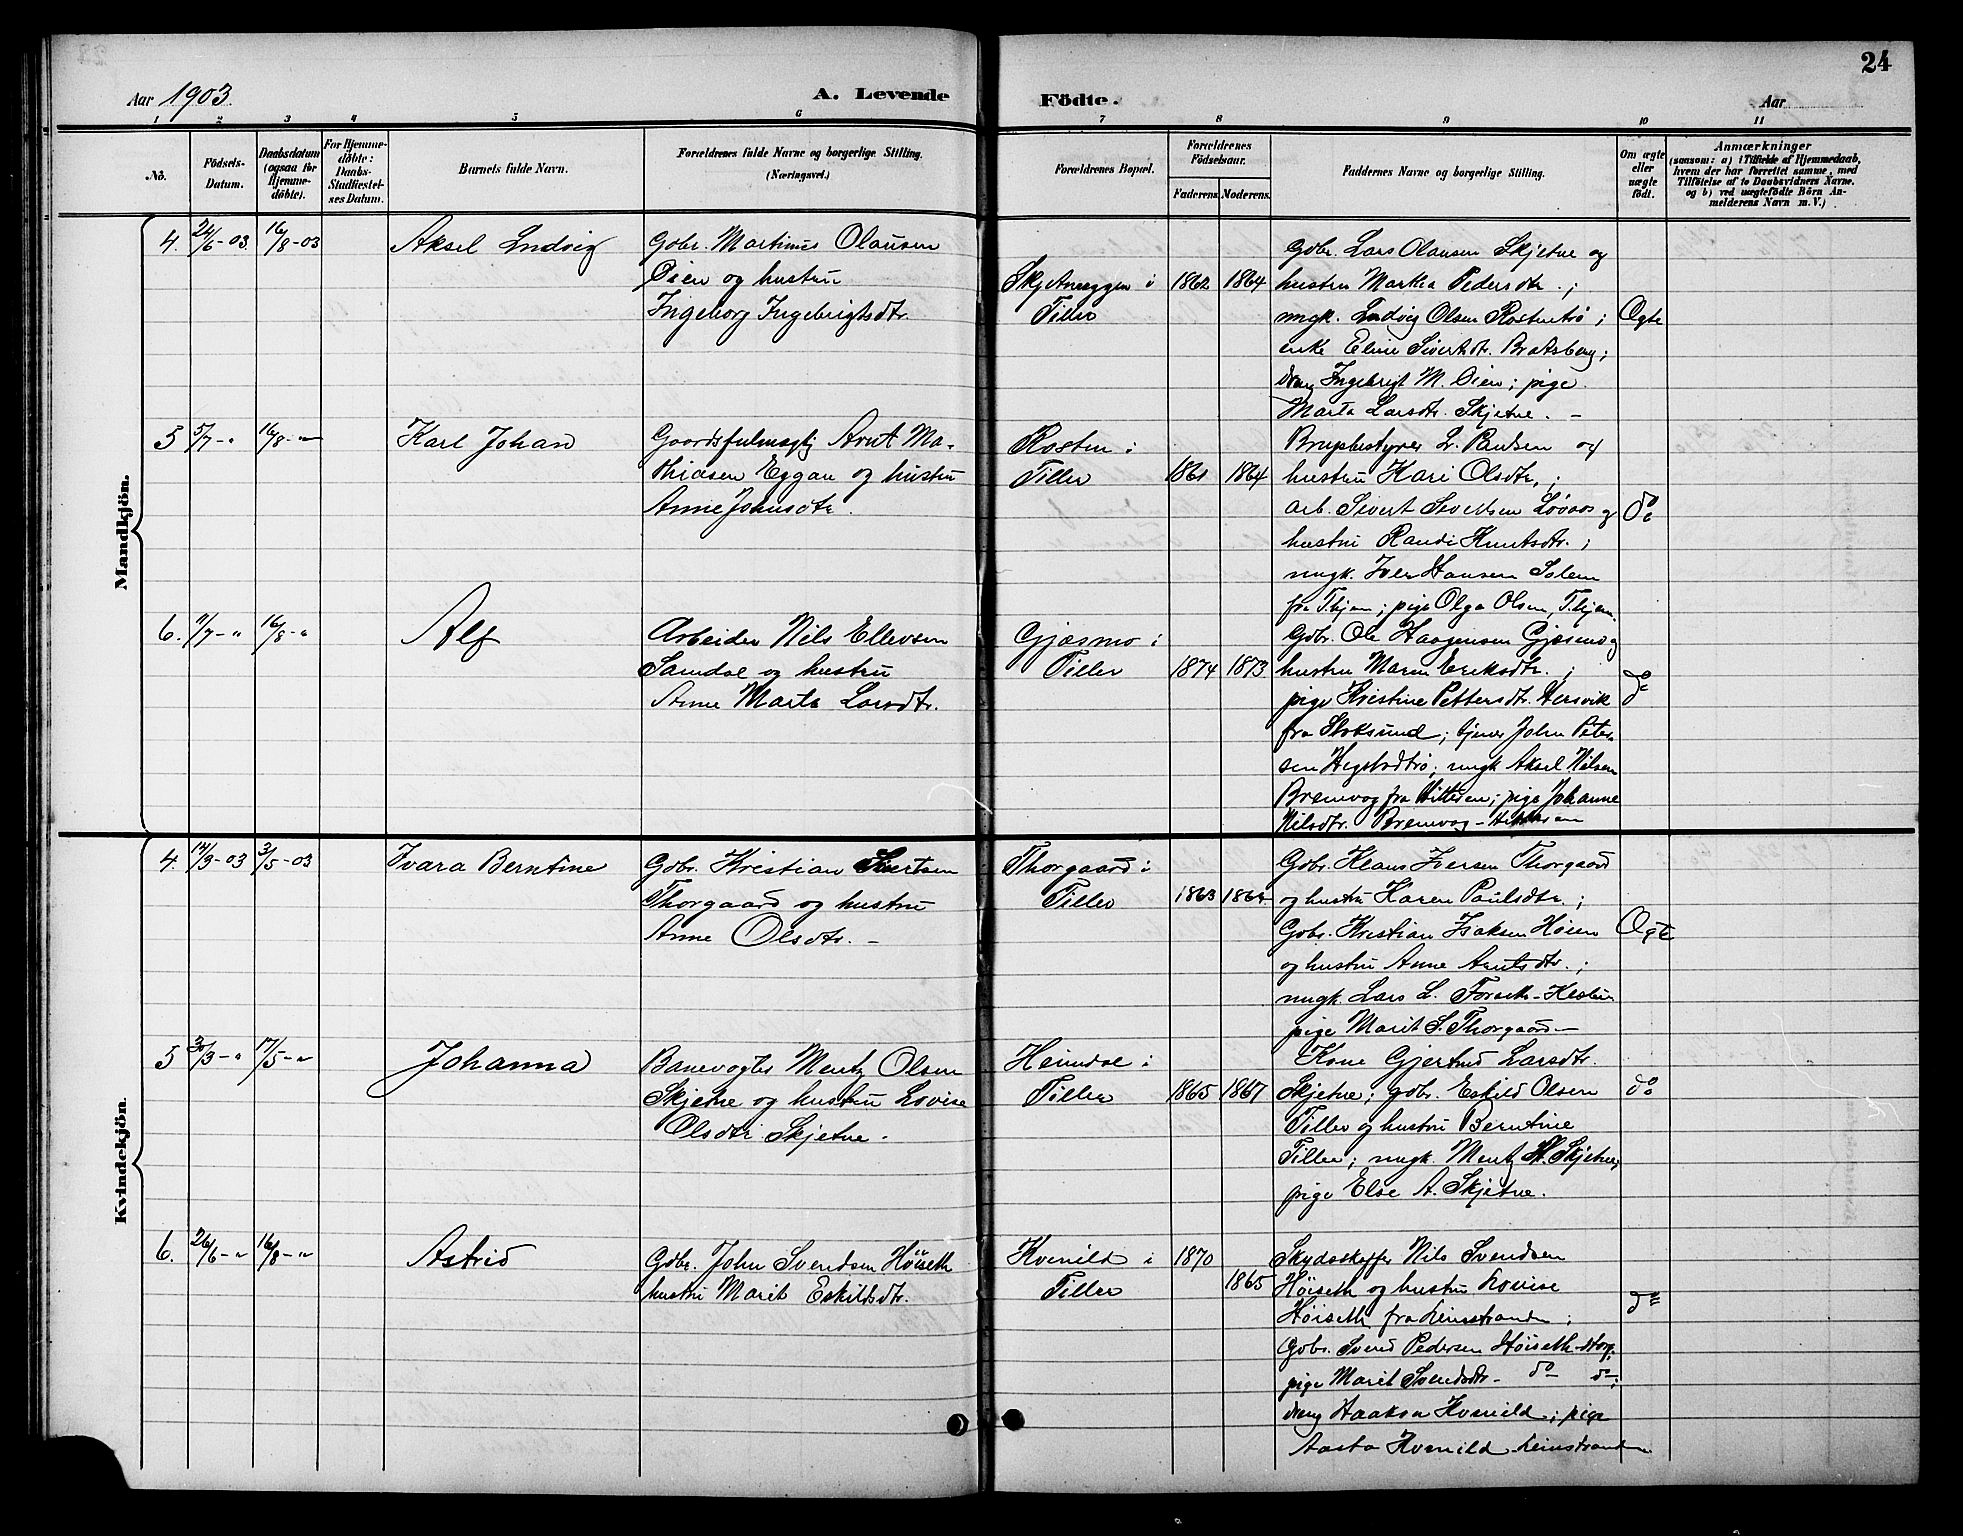 24
Aar 1903.
A. Levende Födte.
Aar
1 2 3 4 5 6 7 8 9 10 11
No.
Födsels-
Datum.
Daabsdatum
(ogsaa for
Hjemme-
döbte).
For Hjemme-
döbte:
Daabs-
Stadfæstel-
ses Datum.
Barnets fulde Navn.
Forældrenes fulde Navne og borgerlige Stilling.
(Næringsvei.)
Forældrenes Bopæl.
Forældrenes
Födselsaar.
Faderens. Moderens.
Faddernes Navne og borgerlige Stilling.
Om ægte
eller
uægte
født.
Anmærkninger
(saasom: a) i Tilfælde af Hjemmedaab,
hvem der har forrettet samme, med
Tilföielse af to Daabsvidners Navne.
og b) ved uægtefödte Börn An-
melderens Navn m. V.)
Mandkjön.
4. 24/6-03. 16/8-03 Aksel Ludvig
Gdbr. Martinus Olausen
Öien og hustru
Ingeborg Ingebrigtsdtr.
Tiller
1862 1864
Gdbr. Lars Olausen Skjetne og
hustru Marka Pedersdtr.;
ungk. Ludvig Olsen Rostentrö;
enke Eline Sivertsdtr. Bratsberg;
dreng Ingebrigt M. Öien; pige
Marta Larsdtr. Skjetne. -
Ægte
5 5/7-" 16/8-" Karl Johan
Gaardsfulmægtig Arnt Ma-
thiasen Eggan og hustru
Anne Johnsdtr.
Rosten i
Tiller
1861 1864
L. Paulsen og
hustru Kari Olsdtr.;
arb. Sivert Sivertsen Løvaas og
hustru Randi Knutsdtr.;
ungk. Iver Hansen Solem
fra Thjem; pige Olga Olsen, Thjem
do
6. 11/7-" 16/8-" Alf
Arbeider Nils Ellevsen
Sandal og hustru
Anne Marta Larsdtr.
Gjæsmo i
Tiller
1874 1873
Gdbr. Ole Haagensen Gjæsmo og
hustru Maren Eriksdtr.;
pige Kristine Pettersdtr. Hersvik
fra Stoksund; tjener John Peter-
sen Hegstadtrö; ungk Aksel Nilsen
Bremvag fra Hitteren; pige Johanne
Nilsdtr. Bremvag - Hitteren
do
Kvindekjön.
4. 14/3-03 3/5-03 Ivara Berntine
Gdbr. Kristian Sivertsen
Thorgaard og hustru
Anne Olsdtr. -
Thorgaard i
Tiller
1863 1864
Gdbr. Klaus Iversen Thorgaard
og hustru Karen Paulsdtr.;
Gdbr. Kristian Isaksen Høien
og hustru Anne Arntsdtr.;
ungk. Lars L. Forseth-
pige Marit S. Thorgaard -
Ægte
5 30/3-" 17/5-" Johanna
Banevogter Mentz Olsen
Skjetne og hustru Lovise
Olsdtr Skjetne.
Heimdal i
Tiller
1865 1867
Kone Gjertrud Larsdtr.
Skjetne; gdbr. Eskild Olsen
Tiller og hustru Berntine
Tiller; ungk. Mentz Skjetne;
pige Else A. Skjetne.
do
6. 26/6-" 16/8-" Astrid
Gdbr. John Svendsen Höiseth
hustru Marit Eskildsdtr.
Kvenild i
Tiller
1870
1865
Skydsskaffer Nils Svendsen
Höiseth og hustru Lovise
Höiseth fra Leinstranden;
Gdbr. Svend Pedersen Höiseth
pige Marit Svendsdtr - do - do -;
dreng Haakon Kvenild; pige
Aasta Kvenild Leinstranden
do